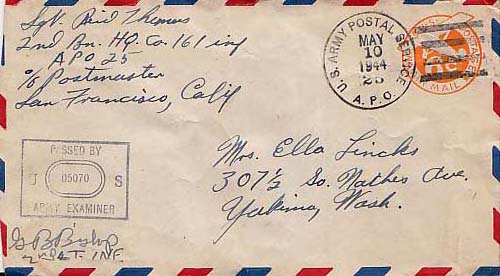 Sgt. Reid Thomas
2nd Bn. Hq. Co. 161 inf
A P O 25
c/o Postmaster
San Francisco, Calif
U.S. ARMY POSTAL SERVICE
MAY
10
1944
25
A.P.O.
AIR MAIL
PASSED BY
U 05070 S
ARMY EXAMINER
Mrs. Ella
307½ So. Naches Ave.
Yakima, Wash.
2nd LT. INF.